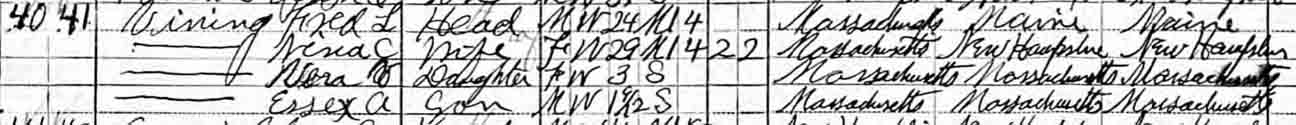 40 41 Vining Fred L Head M W 24 M1 4 Massachusetts Maine Maine
Nina C Wife F W 29 M1 4 2 2 Massachusetts New Hampshire New Hampshire
Daughter F W 3 S Massachusetts Massachusetts Massachusetts
Essex A Son M W 1 S Massachusetts Massachusetts Massachusetts